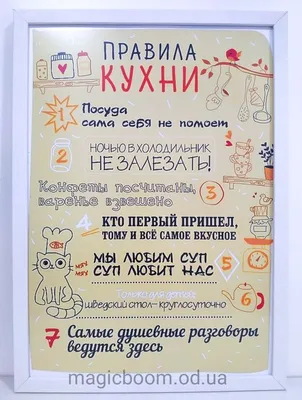 ПРАВИЛА
КУХНИ
1 Посуда
сама себя не помоет
2 НОЧЬЮ В ХОЛОДИЛЬНИК
НЕ ЗАЛЕЗАТЬ!
Конфеты посчитаны, 3
варенье взвешено
4 КТО ПЕРВЫЙ ПРИШЕЛ,
ТОМУ И ВСЁ САМОЕ ВКУСНОЕ
МЫ ЛЮБИМ СУП 5
СУП ЛЮБИТ НАС
Только для детей: 6
шведский стол- круглосуточно
7 Самые душевные разговоры
ведутся здесь
magicboom.od.ua